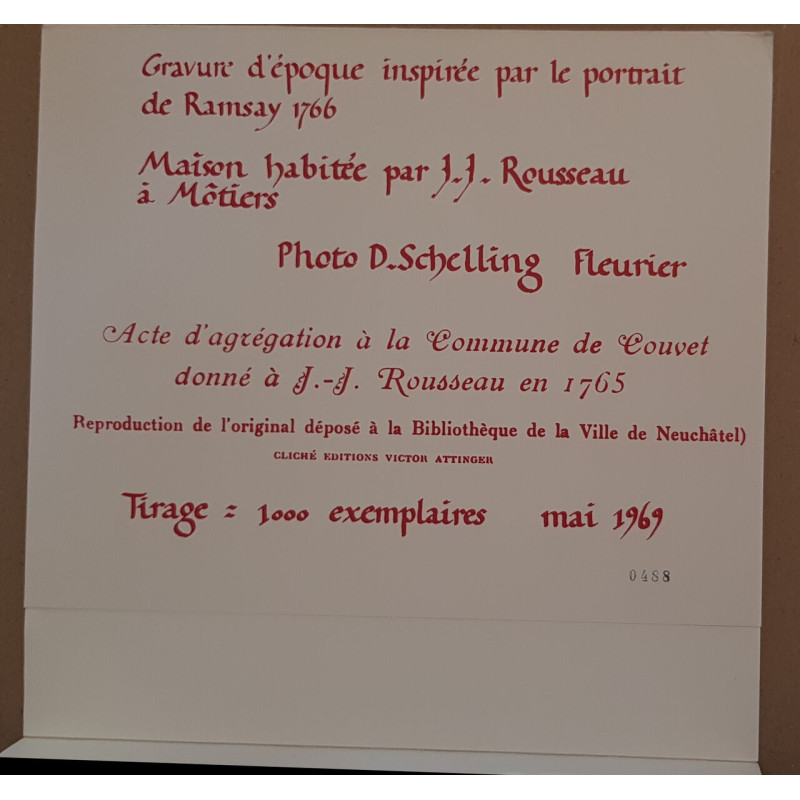 Gravure d'époque inspirée par le portrait
de Ramsay 1766
Maison habitée par J.-J. Rousseau
à Môtiers
Photo D. Schelling Fleurier
Acte d'agrégation à la Commune de Couvet
donné à J.-J. Rousseau en 1765
Reproduction de l'original déposé à la Bibliothèque de la Ville de Neuchâtel)
CLICHÉ EDITIONS VICTOR ATTINGER
Tirage = 1000 exemplaires mai 1969
0488